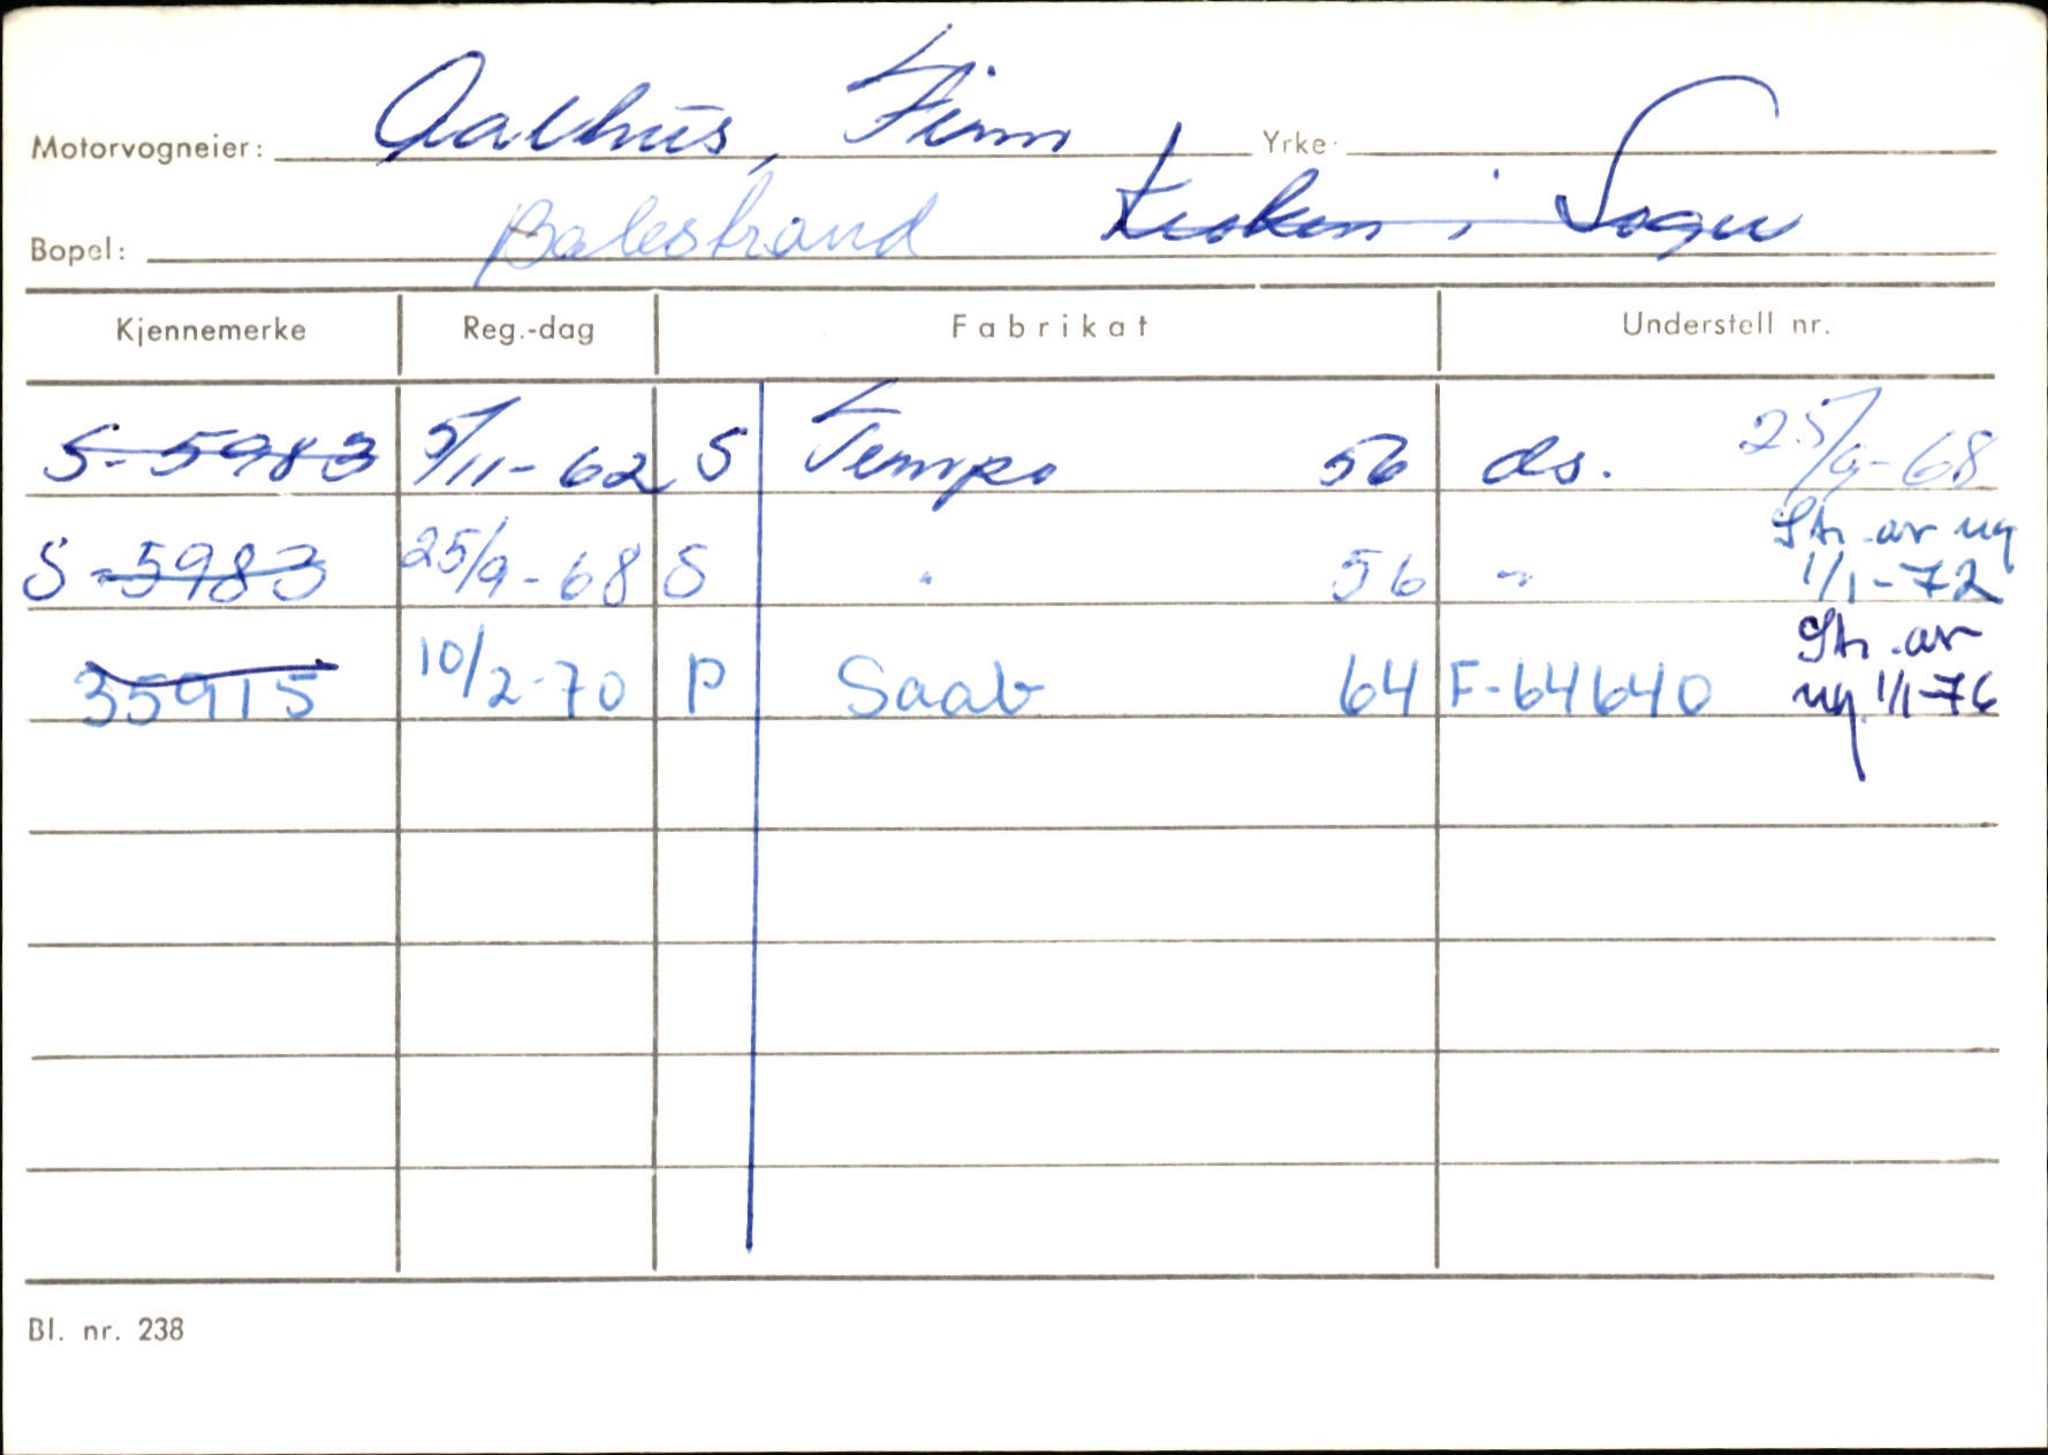 Motorvogneier: Aalhus, Finn Yrke:
Bopel: Balestrand i Sogn
Kjennemerke Reg.-dag Fabrikat Understell nr.
S-5983 5/11-62 S Tempo 56 ds. 25/9-68
S-5983 25/9-68 S " 56 " Str. av ug 1/1-72
35915 10/2-70 P Saab 64 F-64640 Str. av ug. 1/1-76
Bl. nr. 238